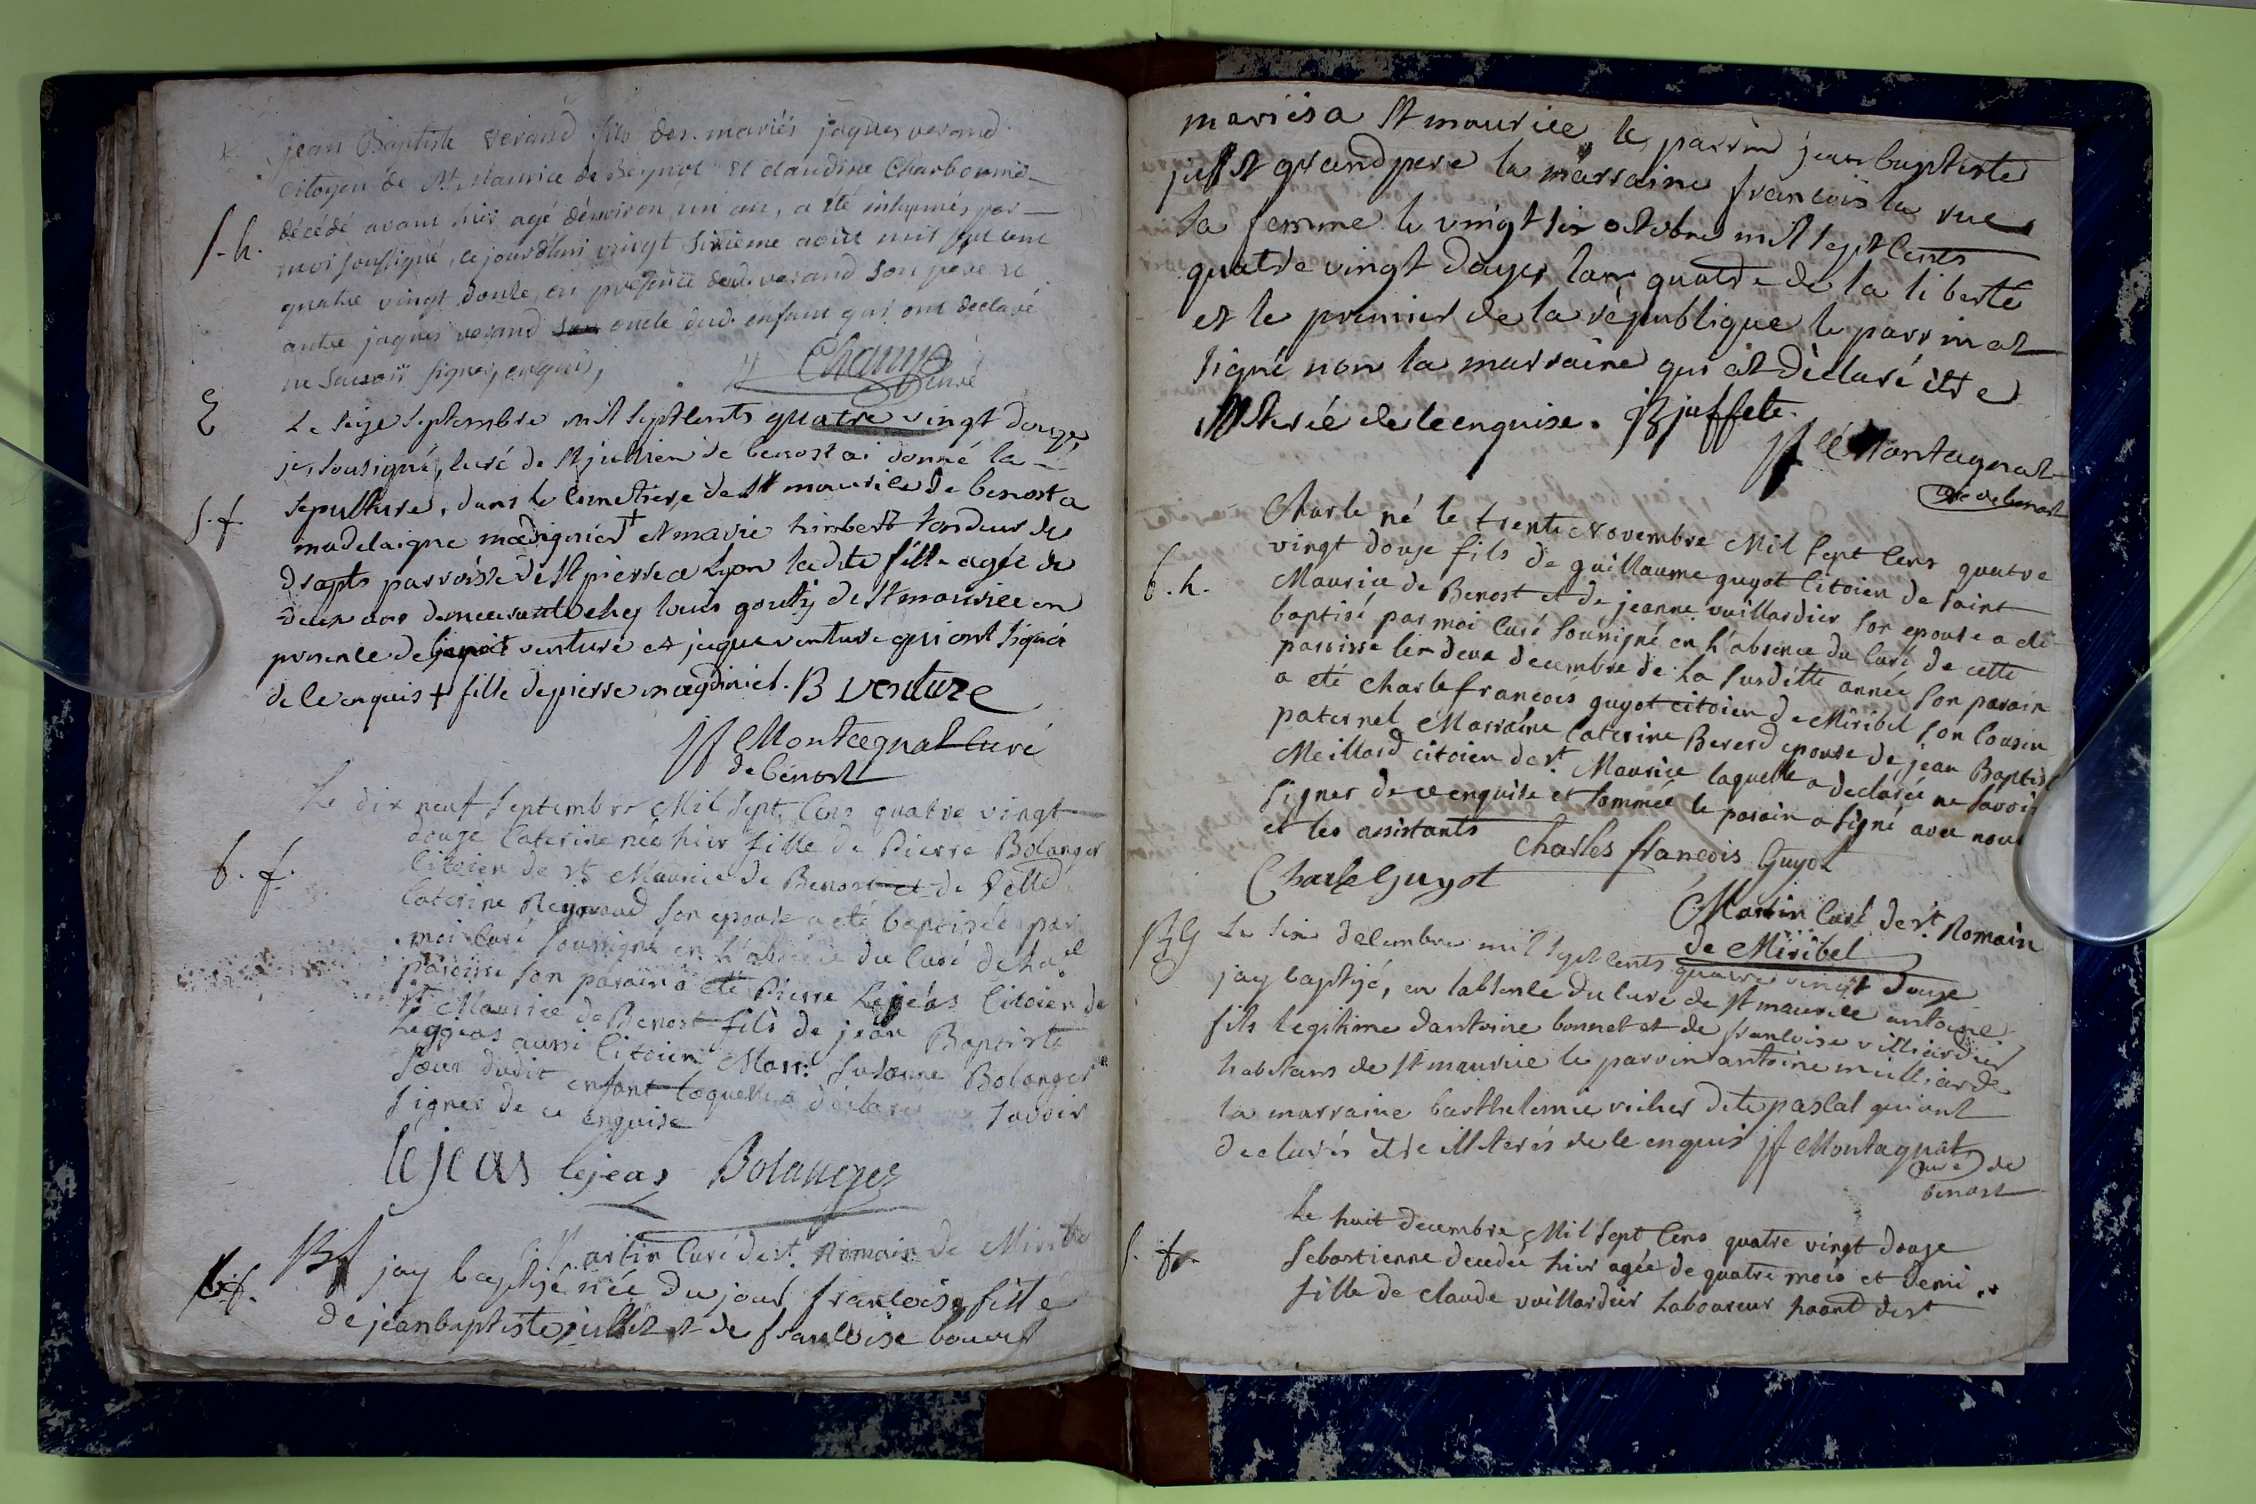 jean Baptiste verand fils des mariés jaques verand
citoyen de St Maurice de Beynot et claudine Charbonnie
s. h. décédé avant hier agé d'environ un an, a été inhumés par
moi soussigné, ce jourd'hui vingt sixieme aoüt mil sept cent
quatre vingt douze, en presence dud. verand son pere et
autre jaques verand oncle dud. enfant qui ont declaré
ne savoir signer, enquis,
curé
Le seize septembre mil septcents quatre vingt douze,
je, sousigné, curé de St jullien de benost ai donné la
s. f. sepulture, dans le cimetiere de St maurice de benost a
madelaigne magdinier + et marie himbert tondeur de
drapts parroisse de St pierre a Lyon ladite fille agée de
deux ans demeurante chez louis gouty de St maurice en
presence de benoit venture et jaque venture qui ont signés
de ce enquis + fille de pierre magdinier. B venture
jf Montagnat curé
de benost
Le dix neuf septembre Mil sept Cens quatre vingt
douze Caterine née hier fille de Pierre Bolanger
b. f. Citoien de St Maurice de Benost et de
Caterine Reynaud son epouse a été baptisée par
moi Curé soussigné en l'absence du Curé de
paroisse son parain a été Pierre Lejéas Citoien de
St Maurice de Benost fils de jean Baptiste
Lejjeas aussi Citoien Marr. Susanne Bolanger
sœur dudit enfant laquelle a déclaré ne savoir
signer de ce enquise
léjeas lejeas Bolanger
Martin Curé de St. Romain de Miribel
b.f. jay baptizé née du jour francoise fille
de jeanbaptiste juffet et de francoise bouvet
mariés a St maurice, le parrin jean baptiste
juffet grand pere la marraine francois la rue
sa femme le vingt six octobre mil sept Cents
quatre vingt douze, lan quatre de la liberté
et le premier de la république le parrin at
signé non la marraine qui at dèclaré être
illiterée de ce enquise. JB juffete.
jf Montagnat
curé de benost
Charle né le trente Novembre Mil sept Cens quatre
vingt douze fils de guillaume guyot Citoien de saint
b. h. Maurice de Benost et de jeanne vuillardier son epouse a été
baptisé par moi Curé soussigné en l'absence du Curé de cette
paroisse le deux decembre de la susditte année son parain
a eté Charle francois guyot citoien de Miribel son Cousin
paternel Marraine Caterine Bererd epouse de jean Baptis
Meillard citoien de St. Maurice laquelle a declarée ne savoir
signer de ce enquise et sommée le parain a signé avec nous
et les assistants Charles francois Guyot
Charle Guyot
Martin Curé de St. Romain
de Miribel
Le six decembre mil sept Cents quatre vingt douze
jay baptizé, en labsence du curé de St maurice antoine
fils legitime dantoine bonnet et de francoise villiardier
habitans de St maurice le parrin antoine milliarde
la marraine barthelemie dite pascal qui ont
declarés être illiterés de ce enquis jf Montagnat
curé de
benost
Le huit decembre Mil sept Cens quatre vingt douze
s. f. Sebastienne decedée hier agée de quatre mois et demi
fille de claude vuillardier Laboureur de St